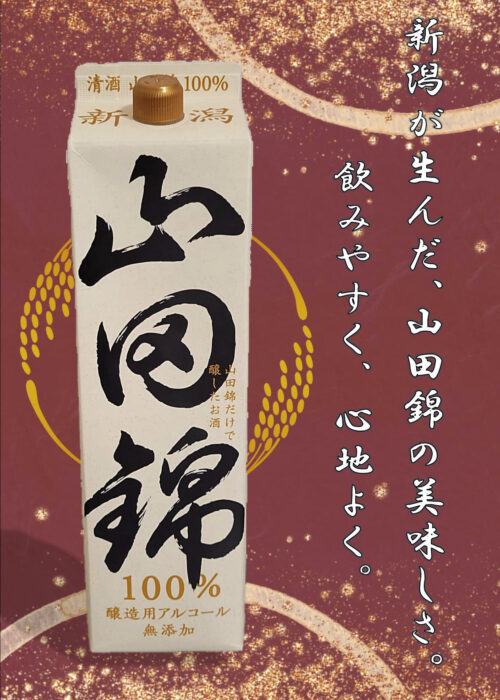 新潟が生んだ、山田錦の美味しさ。
飲みやすく、心地よく。
清酒 山 100%
新潟
山田錦
山田錦だけで
醸したお酒
100%
醸造用アルコール
無添加